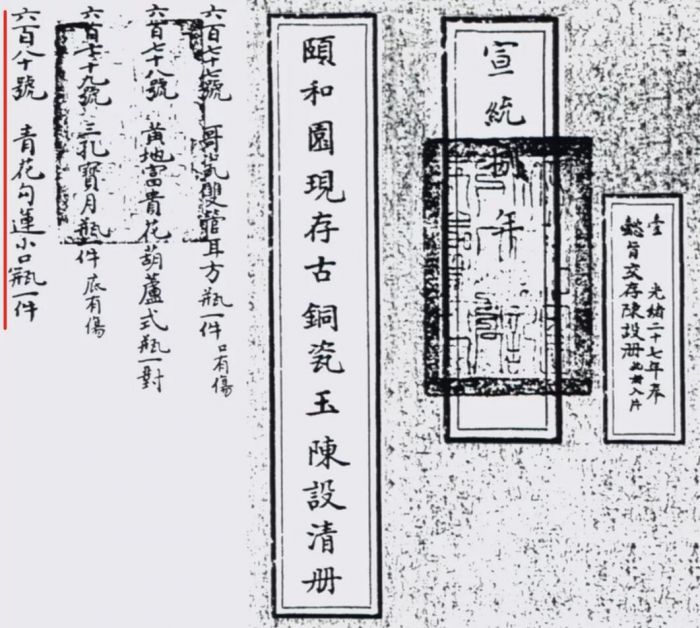 壹 光緒二十七年奉
懿旨交存陳設册
宣統
年
頤和園現存古銅瓷玉陳設清册
六百七十七號 哥瓷雙管耳方瓶一件 口有傷
六百七十八號 黃地富貴花葫蘆式瓶一對
六百七十九號 三孔寶月瓶一件 底有傷
六百八十號 青花勾蓮小口瓶一件